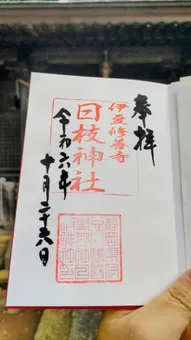 奉拝
伊豆修善寺
日枝神社
令和六年
十月二十六日